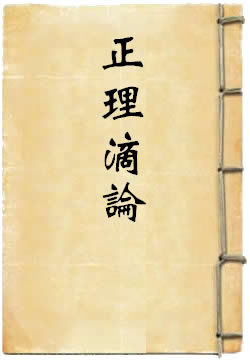 正理滴論